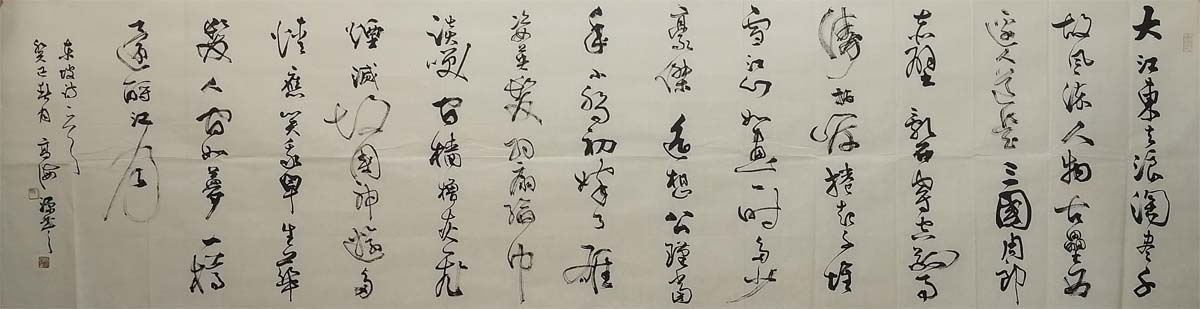 大江東去浪淘盡千
故風流人物古壘西
邊人道是三國周郎
赤壁亂石穿空驚
濤拍岸捲起千堆
雪江山如畫一時多少
豪傑遙想公瑾當
年小喬初嫁了雄
姿英發羽扇綸巾
談笑間檣櫓灰飛
煙滅故國神遊多
情應笑我早生華
髮人間如夢一樽
還酹江月
東坡詩一首
癸巳秋月